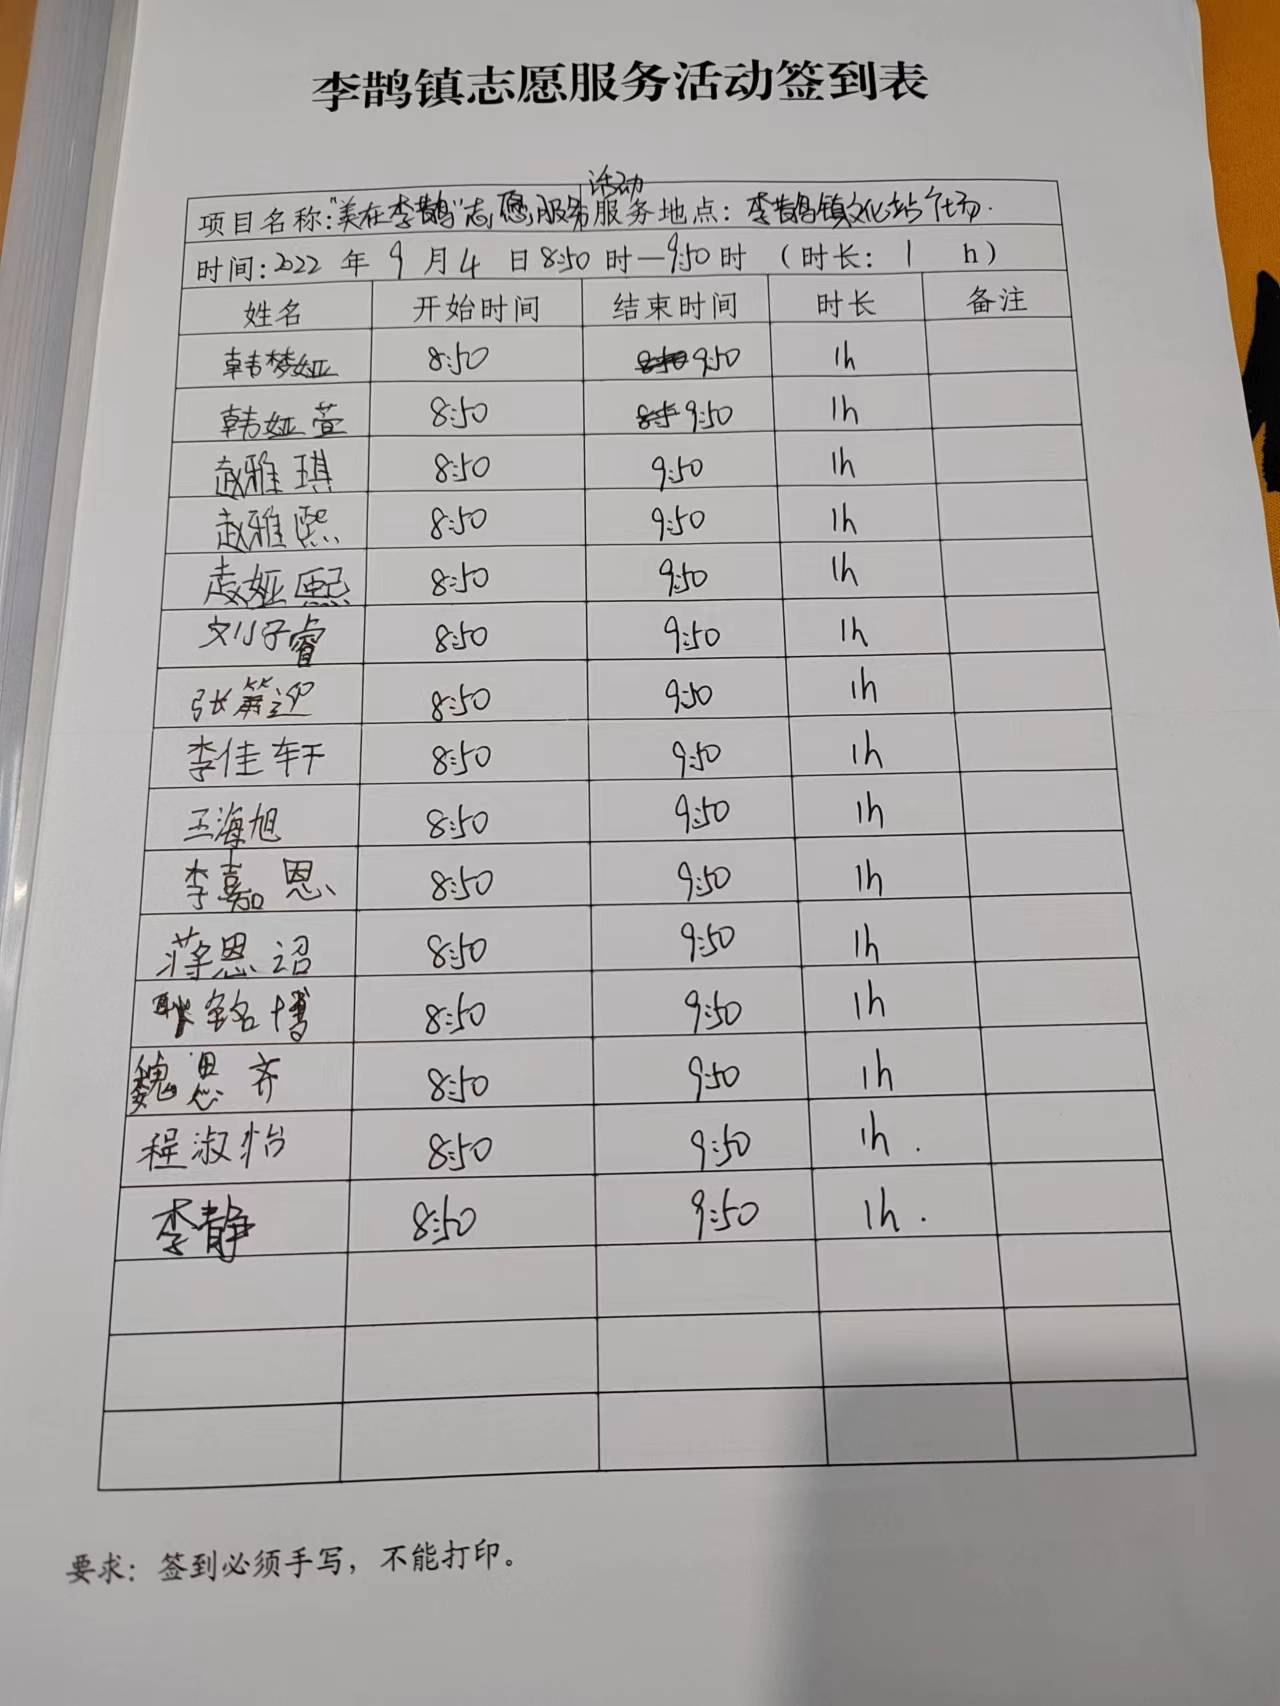 李鹊镇志愿服务活动签到表
项目名称:"美在李鹊"志愿服务活动 服务地点:李鹊镇文化站广场.
时间:2022年9月4日8:50时—9:50时(时长:1 h)
姓名 开始时间 结束时间 时长 备注
韩梦娅 8:50 9:50 1h
韩娅萱 8:50 9:50 1h
赵雅琪 8:50 9:50 1h
赵雅熙 8:50 9:50 1h
赵娅熙 8:50 9:50 1h
刘子睿 8:50 9:50 1h
张 8:50 9:50 1h
李佳轩 8:50 9:50 1h
王海旭 8:50 9:50 1h
李嘉恩 8:50 9:50 1h
蒋恩诏 8:50 9:50 1h
耿铭博 8:50 9:50 1h
魏思齐 8:50 9:50 1h
程淑怡 8:50 9:50 1h.
李静 8:50 9:50 1h.
要求：签到必须手写，不能打印。